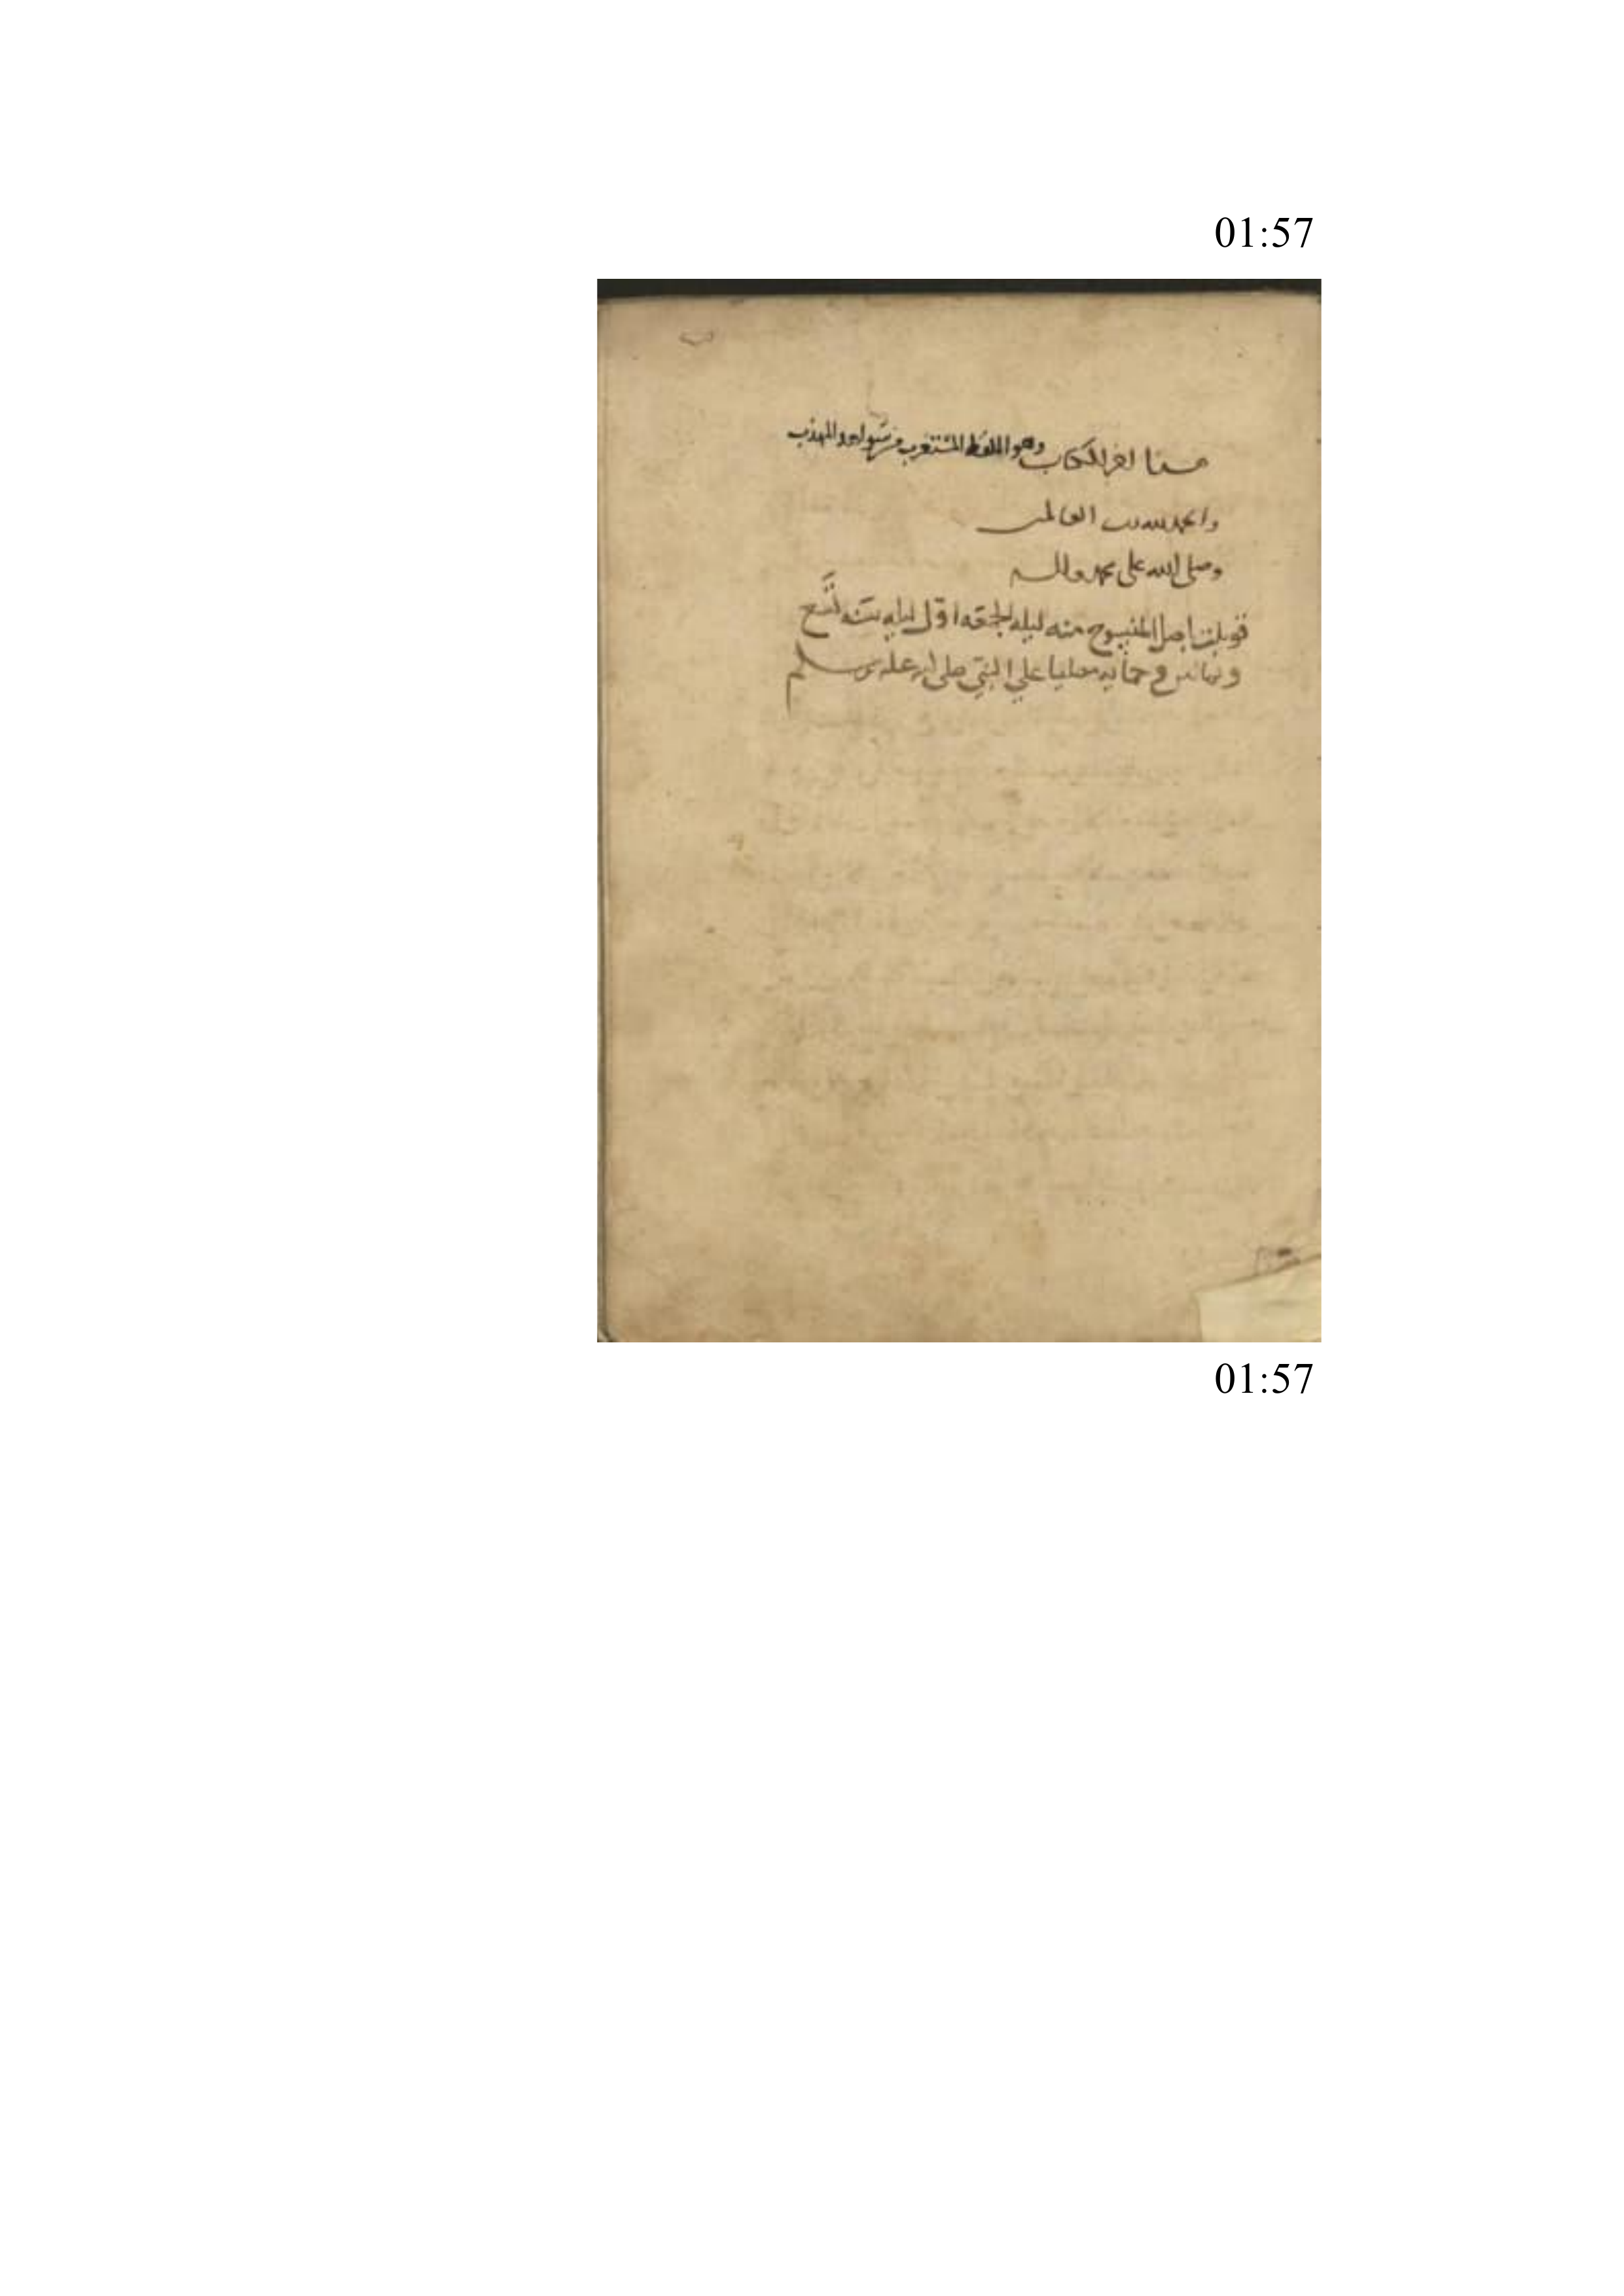 01:57
هذا اخر الكتاب وهو اللفظ المستغرب من شواهد المهذب
والحمد لله رب العالمين
وصلى الله على محمد واله
قوبلت باصل المنسوخ منه ليله الجمعه اول ليله سنه تسع
وثمانين وخمايه مصليا على النبي صلى الله عليه وسلم
01:57